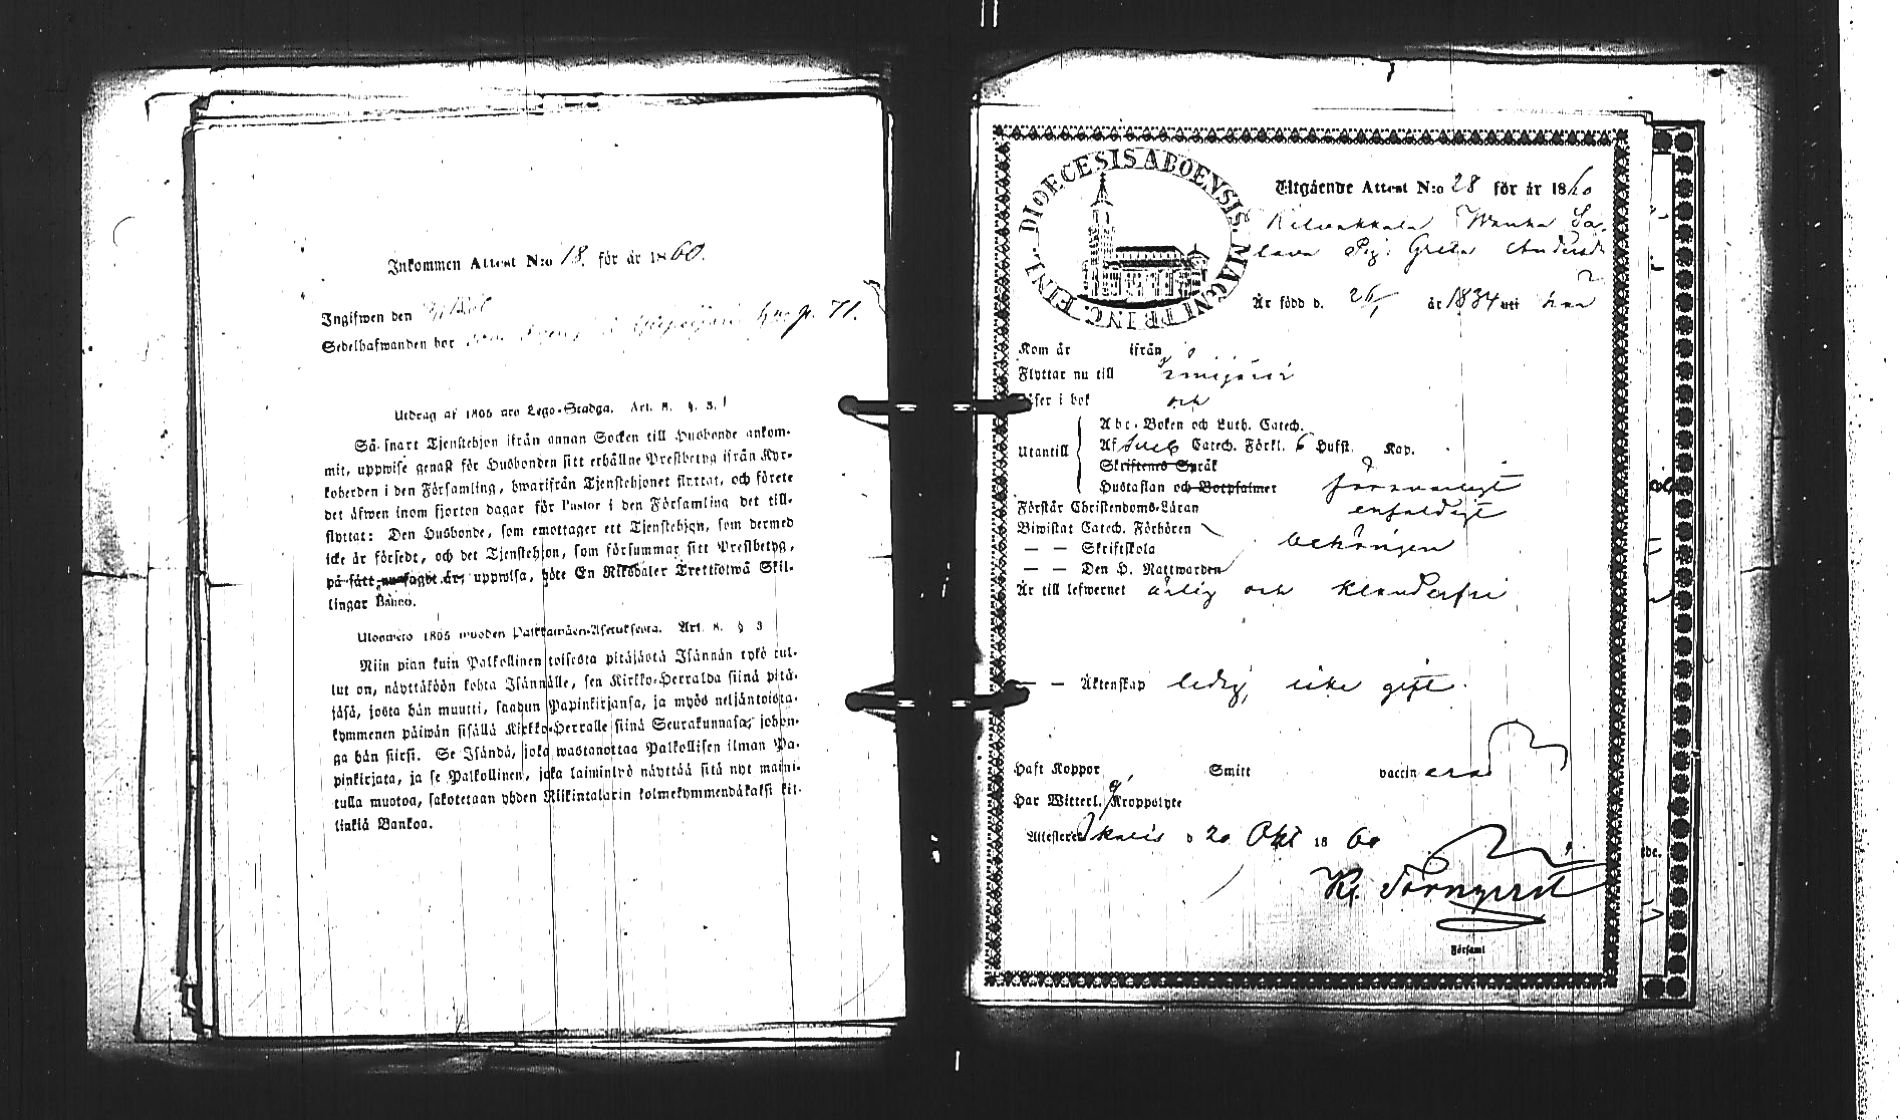 Inkommen Attest N:o 18. för år 1860.
Ingifwen den
Sedelhafwanden bor 71.
Utdrag af 1805 års Lego-Stadga. Art. 8. §. 3.
Så snart Tjenstehjon ifrån annan Socken till Husbonde ankom-
mit, uppwise genast för Husbonden sitt erhållne Prestbetyg ifrån Kyr-
koherden i den Församling, hwarifrån Tjenstehjonet flyttat, och förete
det äfwen inom fjorton dagar för Pastor i den Församling det till-
flyttat: Den Husbonde, som emottager ett Tjenstehjon, som dermed
icke är försedt, och det Tjenstehjon, som försummar sitt Prestbetyg,
på sätt nu sagdt är, uppwisa, böte En Riksdaler Trettiotwå Skil-
lingar Banco.
Ulosweto 1805 wuoden Palkkawäen-Asetuksesta. Art. 8. § 3
Niin pian kuin Palkollinen toisesta pitäjästä Isännän tykö tul-
lut on, näyttäköön kohta Isännälle, sen Kirkko-Herralda siinä pitä-
jäsä, josta hän muutti, saadun Papinkirjansa, ja myös neljäntoista-
kymmenen päiwän sisällä Kirkko-Herralle siinä Seurakunnasa, johon-
ga hän siirsi. Se Isändä, joka wastanottaa Palkollisen ilman Pa-
pinkirjata, ja se Palkollinen, joka laiminlyö näyttää sitä nyt maini-
tulla muotoa, sakotetaan yhden Riikintalarin kolmekymmendäkaksi kil-
linkiä Bankoa.
DIOECESIS ABOENSIS. MAGNI PRINC. FINL.
Utgående Attest N:o 28 för år 1860
Pig. Greta
Är född d. 26/ år 1834 uti
Kom år ifrån
Flyttar nu till
Läser i bok och
Utantill
Abc-Boken och Luth. Catech.
Af Sveb Catech. Förkl. 6 Hufst. Kap.
Skriftenes Språk
Hustaflan och Botpsalmer försvarligt
Förstår Christendoms-Läran enfaldigt
Biwistat Catech. Förhören
— — Skriftskola behörigen
— — Den H. Nattwarden
Är till lefwernet ärlig och klanderfri
— — Äktenskap ledig, icke gift.
Haft Koppor Smitt vaccin
Har Witterl. Kroppslyte
Attesterar d 20 Okt 1860
Törnqvist
Församl